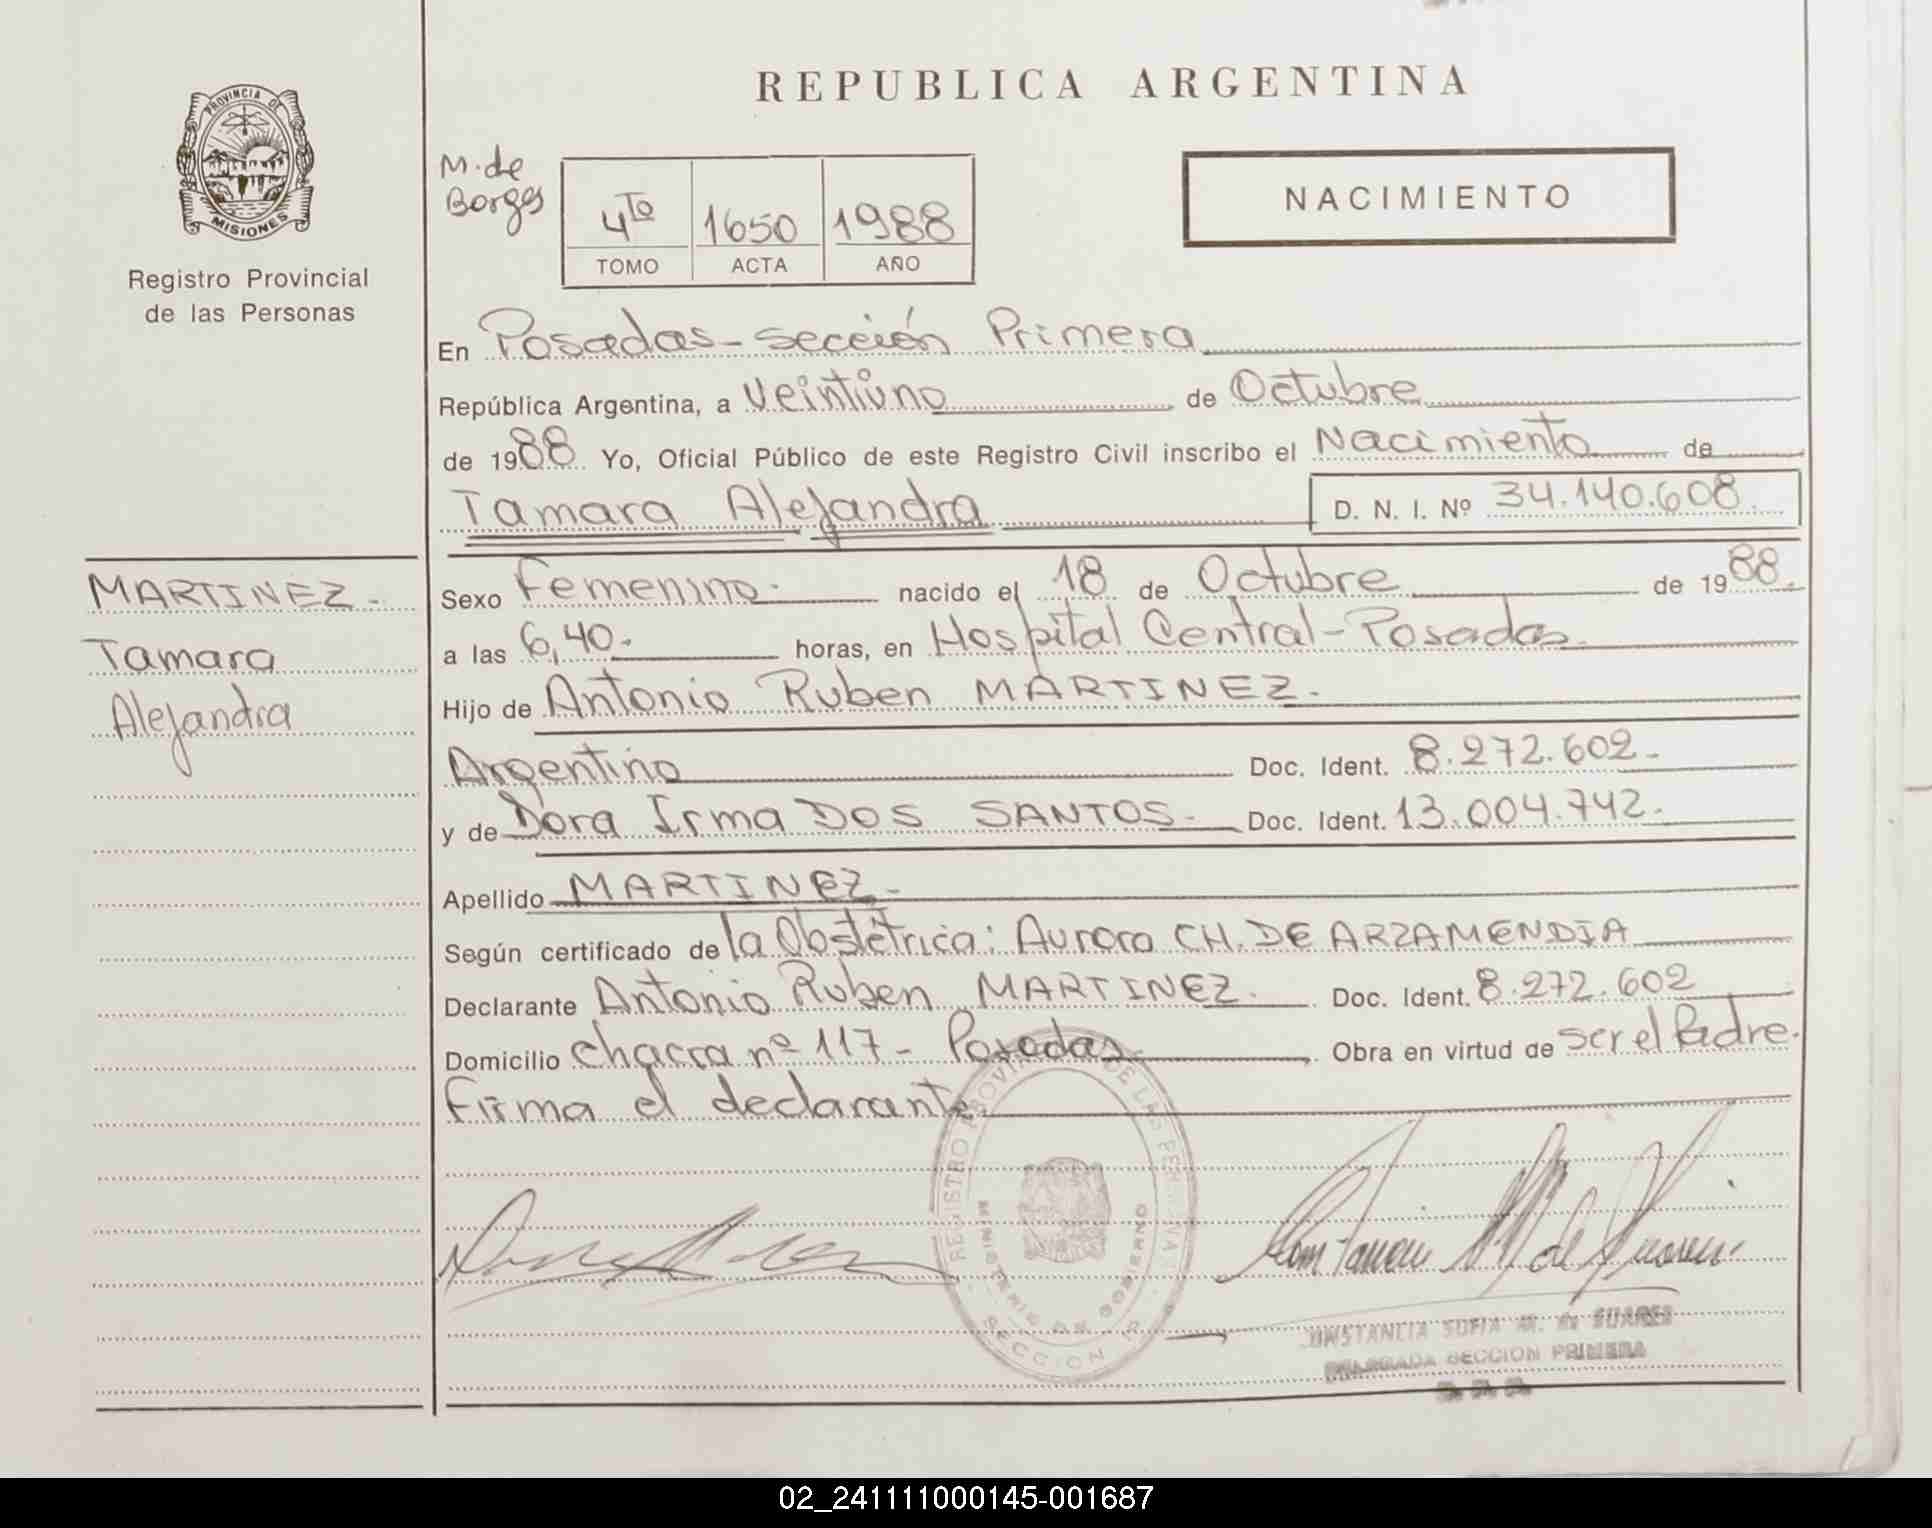 REPUBLICA ARGENTINA
PROVINCIA DE
MISIONES
Registro Provincial
de las Personas
M. de
Borges
4to 1650 1988
TOMO ACTA AÑO
NACIMIENTO
En Posadas - sección Primera
República Argentina, a Veintiuno de Octubre
de 1988 Yo, Oficial Público de este Registro Civil inscribo el Nacimiento de
Tamara Alejandra D. N. I. Nº 34.140.608
MARTINEZ -
Tamara
Alejandra
Sexo Femenino. nacido el 18 de Octubre de 1988.
a las 6,40. horas, en Hospital Central - Posadas.
Hijo de Antonio Ruben MARTINEZ.
Argentino Doc. Ident. 8.272.602-
y de Dora Irma DOS SANTOS- Doc. Ident. 13.004.742.
Apellido MARTINEZ-
Según certificado de la Obstétrica: Aurora CH. DE ARZAMENDIA
Declarante Antonio Ruben MARTINEZ. Doc. Ident. 8.272.602
Domicilio chacra nº 117 - Posadas. Obra en virtud de ser el Padre.
Firma el declarante.
REGISTRO PROVINCIAL DE LAS PERSONAS
MINISTERIO DE GOBIERNO
SECCION 1ª
CONSTANCIA SOFIA M. de SUAREZ
DELEGADA SECCION PRIMERA
02_241111000145-001687